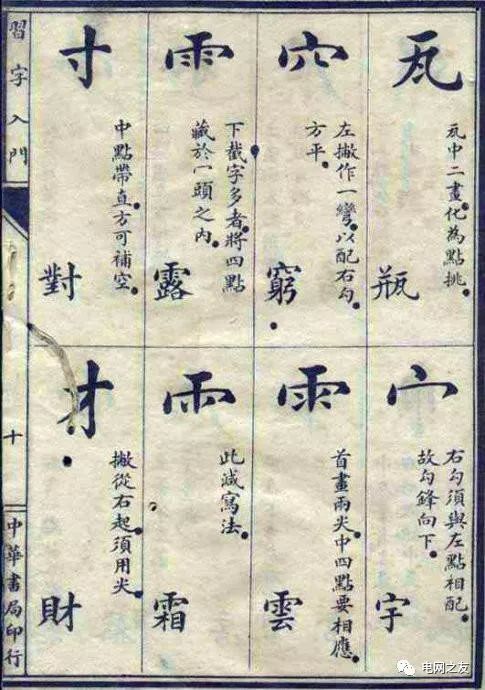 瓦
瓦中二畫。化為點挑。
瓶
穴
左撇作一彎。以配右勾。
方平。
窮
雨
下截字多者。將四點
藏於一頭之內。
露
寸
中點帶直。方可補空。
對
宀
右勾須與左點相配。
故勾鋒向下。
宇
雨
首畫兩尖。中四點要相應。
雲
雨
此減寫法。
霜
才
撇從右起。須用尖。
財
習字入門
十
中華書局印行
电网之友